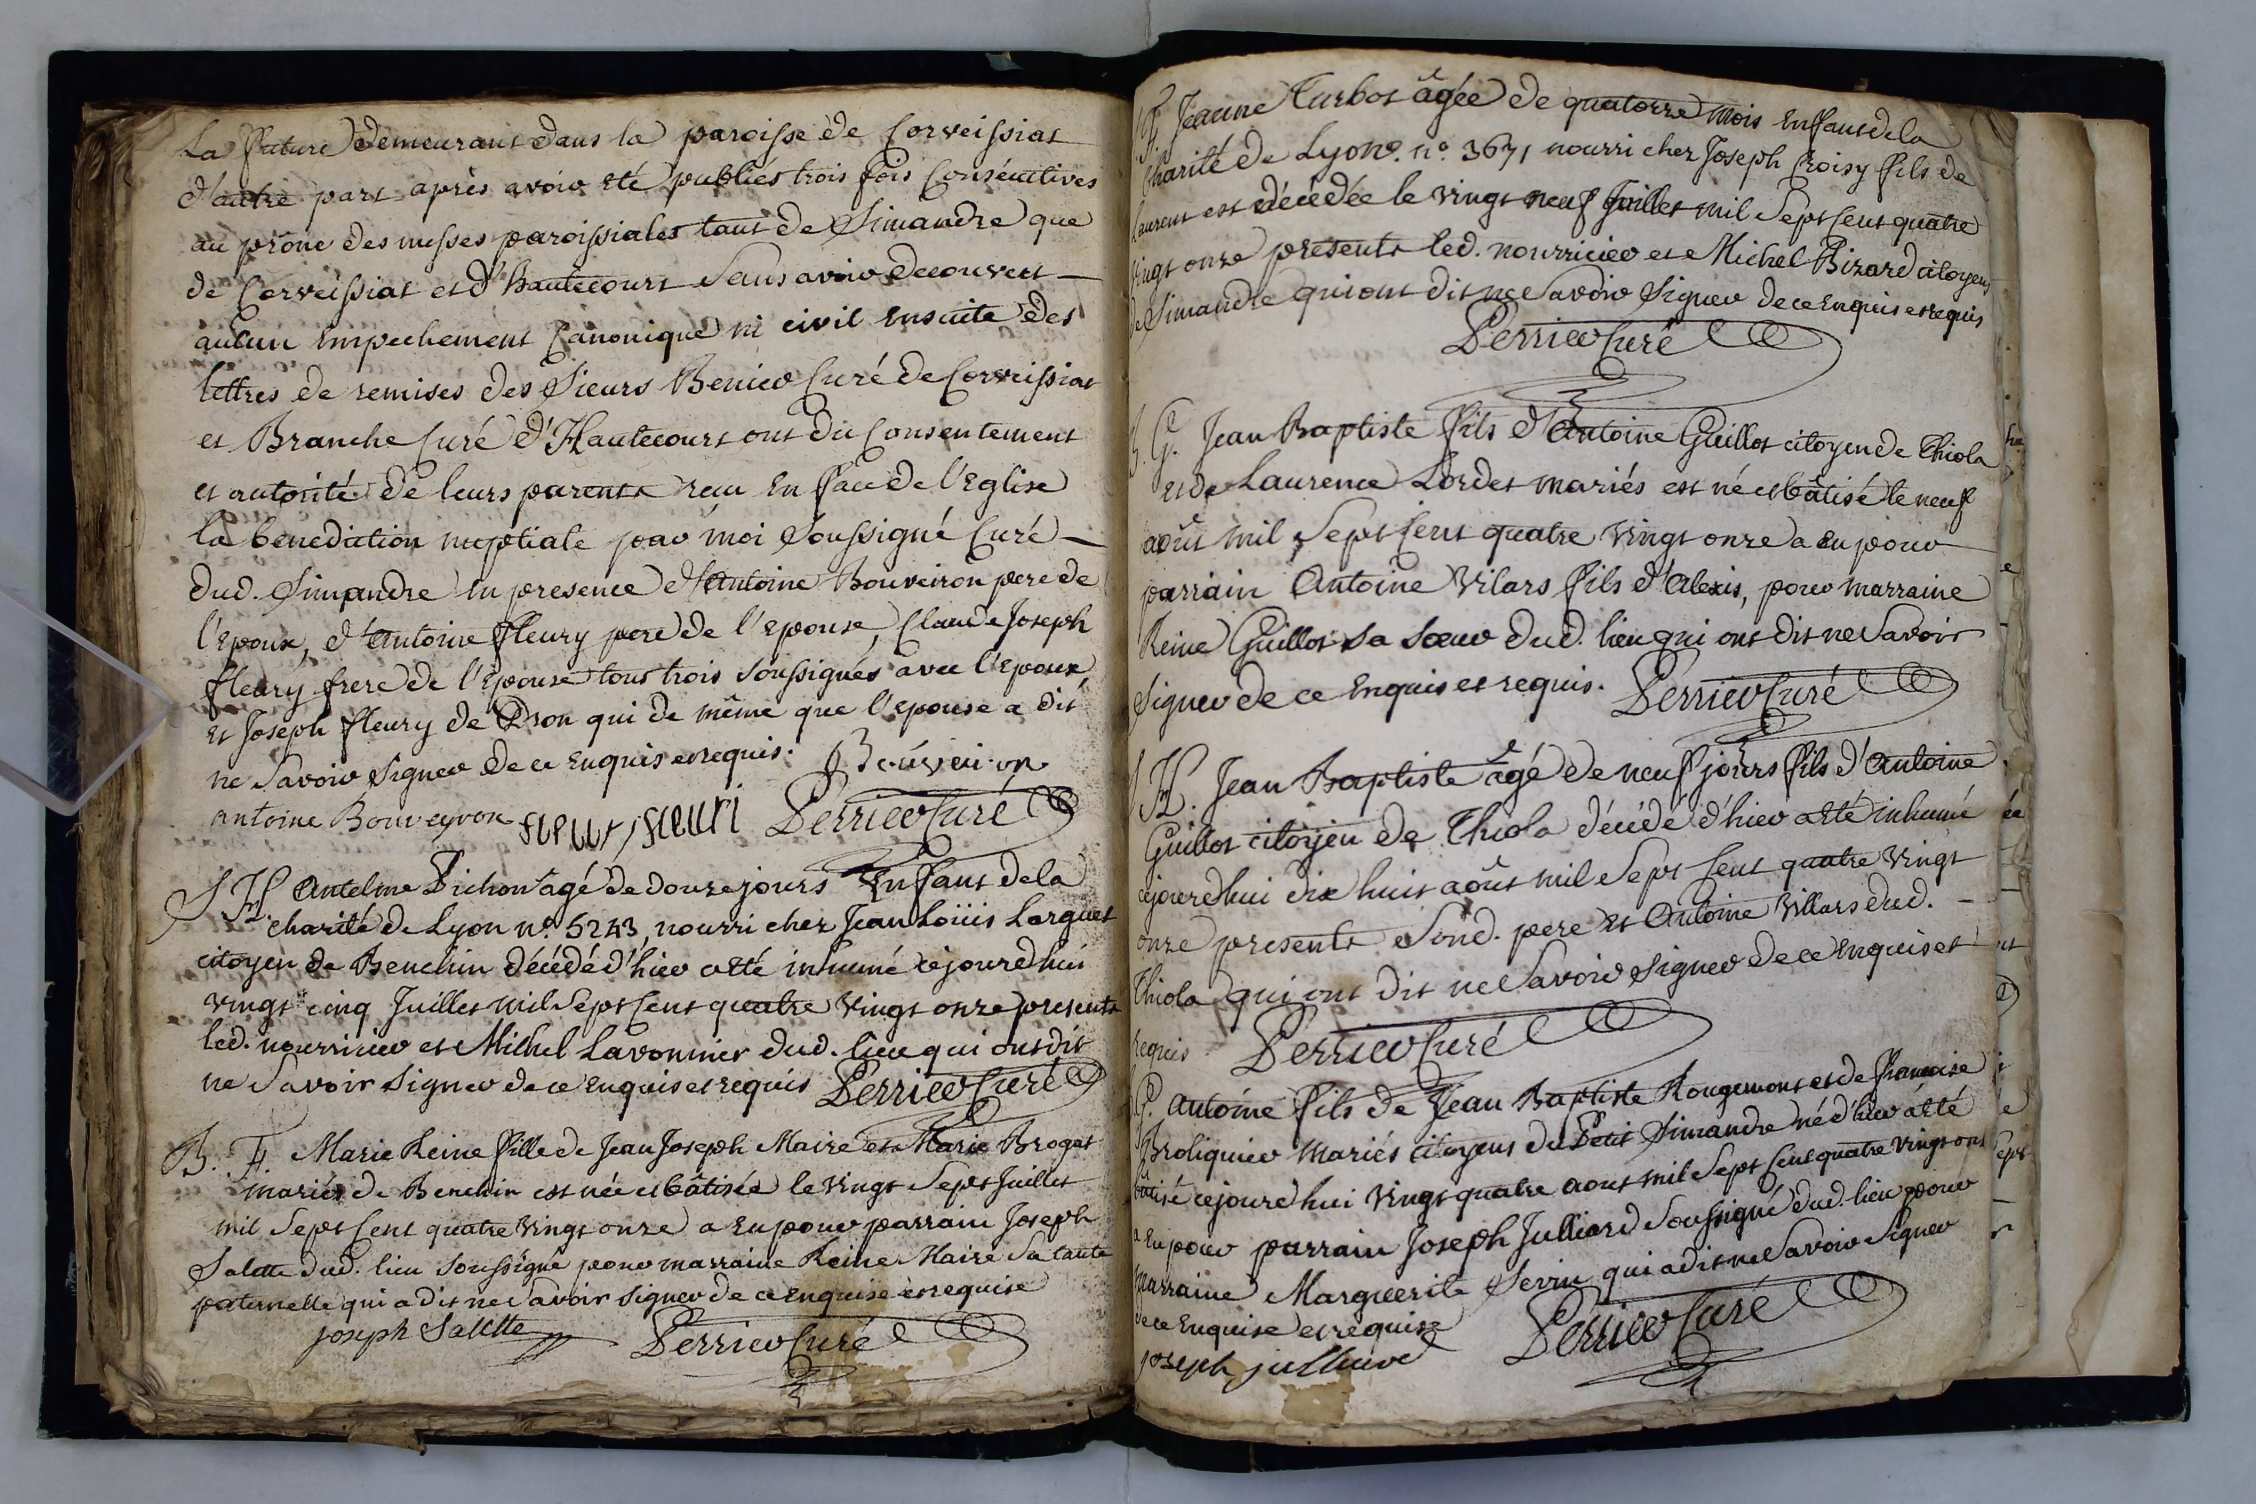 La future demeurant dans la paroisse de Corveissiat
d'autre part après avoir eté publiés trois fois Consécutives
au prône des messes paroissiales tant de Simandre que
de Corveissiat et d'hautecourt Sans avoir decouvert
aucun empechement Canonique ni civil ensuite des
lettres de remises des Sieurs Benier Curé de Corveissiat
et Branche Curé d'Hautecourt ont du Consentement
et autorité de leurs parents recu en face de l'Eglise
la benediction nuptiale par moi Soussigné Curé
dud. Simandre en presence d'Antoine Bouveiron pere de
l'Epoux, d'Antoine fleury pere de l'epouse, Claude Joseph
fleury frere de l'Epouse tous trois Soussignés avec l'epoux,
et Joseph fleury de Dron qui de même que l'epouse a dit
ne Savoir Signer de ce enquis et requis. Bouveiron
antoine Bouveyron fleury fleuri Perrier Curé
S H. Antelme Pichon agé de douze jours Enfant de la
charité de Lyon n°. 5243, nourri chez Jean Loüis Larguet
citoyen de Benchin décédé d'hier a eté inhumé cejourdhui
vingt cinq Juillet mil Sept Cent quatre vingt onze presents
led. nourricier et Michel Lavonnier dud. lieu qui ont dit
ne Savoir Signer de ce enquis et requis Perrier Curé
B. F. Marie Reine fille de Jean Joseph Maire et Marie Brogat
mariés de Benchin est née et bâtisée le vingt Sept Juillet
mil Sept Cent quatre vingt onze a eu pour parrain Joseph
Salette dud. lieu Soussigné pour marraine Reine Maire Sa tante
paternelle qui a dit ne Savoir Signer de ce enquise et requise
joseph Salette Perrier Curé
H. Jeanne Turbot âgée de quatorze mois enfant de la
Charité de Lyon. n°. 3671 nourri chez Joseph Croisy fils de
Laurent est décédée le vingt neuf Juillet mil Sept Cent quatre
vingt onze presents led. nourricier et Michel Bizard citoyens
de Simandre qui ont dit ne Savoir Signer de ce enquis et requis
Perrier Curé
B. G. Jean Baptiste fils d'Antoine Guillot citoyen de Thiola
et de Laurence Lordet mariés est né et bâtisé le neuf
août mil Sept Cent quatre vingt onze a eu pour
parrain Antoine Vilars fils d'Alexis, pour marraine
Reine Guillot Sa Sœur dud. lieu qui ont dit ne Savoir
Signer de ce enquis et requis. Perrier Curé
S H. Jean Baptiste âgé de neuf jours fils d'Antoine
Guillot citoyen de Thiola décédé d'hier a eté inhumé
cejourdhui dix huit août mil Sept Cent quatre vingt
onze presents Sond. pere et Antoine Villars dud.
Thiola qui ont dit ne Savoir Signer de ce enquis et
requis Perrier Curé
G. Antoine fils de Jean Baptiste Rougemont et de francoise
Broliquier Mariés citoyens du Petit Simandre né d'hier a eté
bâtisé cejourdhui vingt quatre aout mil Sept Cent quatre vingt onz
a eu pour parrain Joseph Julliard Soussigné dud. lieu pour
marraine Marguerite Servin qui a dit ne Savoir Signer
de ce enquise et requise Perrier Curé
joseph julliard